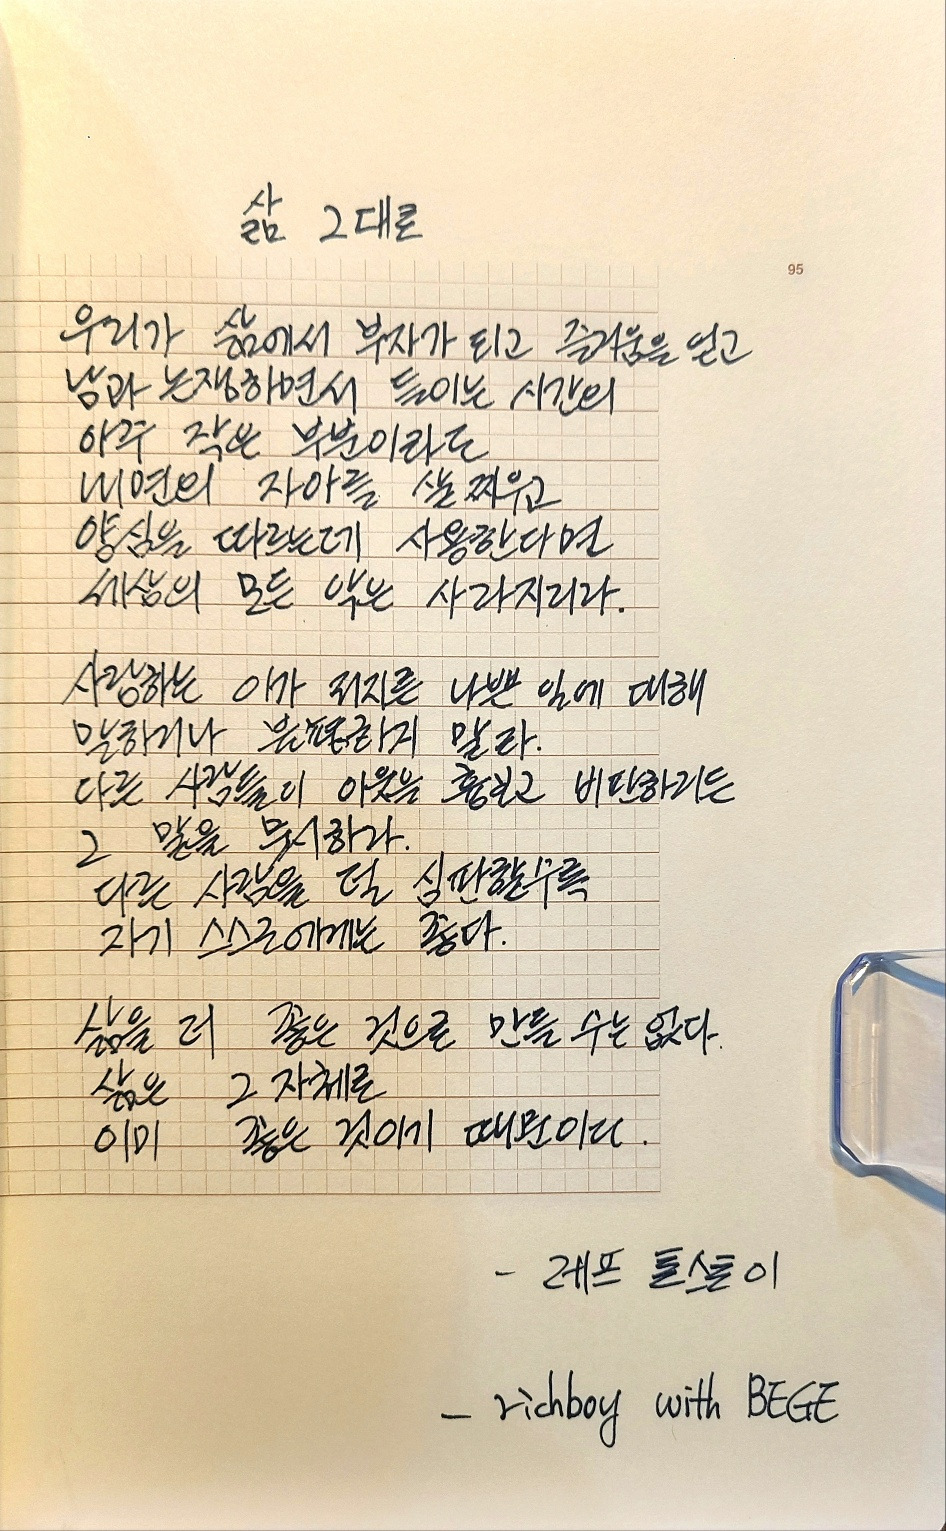 삶 그대로
95
우리가 삶에서 부자가 되고 즐거움을 얻고
남과 논쟁하면서 들이는 시간의
아주 작은 부분이라도
내면의 자아를 살찌우고
양심을 따르는데 사용한다면
세상의 모든 악은 사라지리라.
사랑하는 이가 저지른 나쁜 일에 대해
말하거나 불평하지 말라.
다른 사람들이 이웃을 흉보고 비판하려든
그 말을 무시하라.
다른 사람을 덜 심판할수록
자기 스스로에게는 좋다.
삶을 더 좋은 것으로 만들 수는 없다.
삶은 그 자체로
이미 좋은 것이기 때문이다.
- 레프 톨스토이
- richboy with BEGE